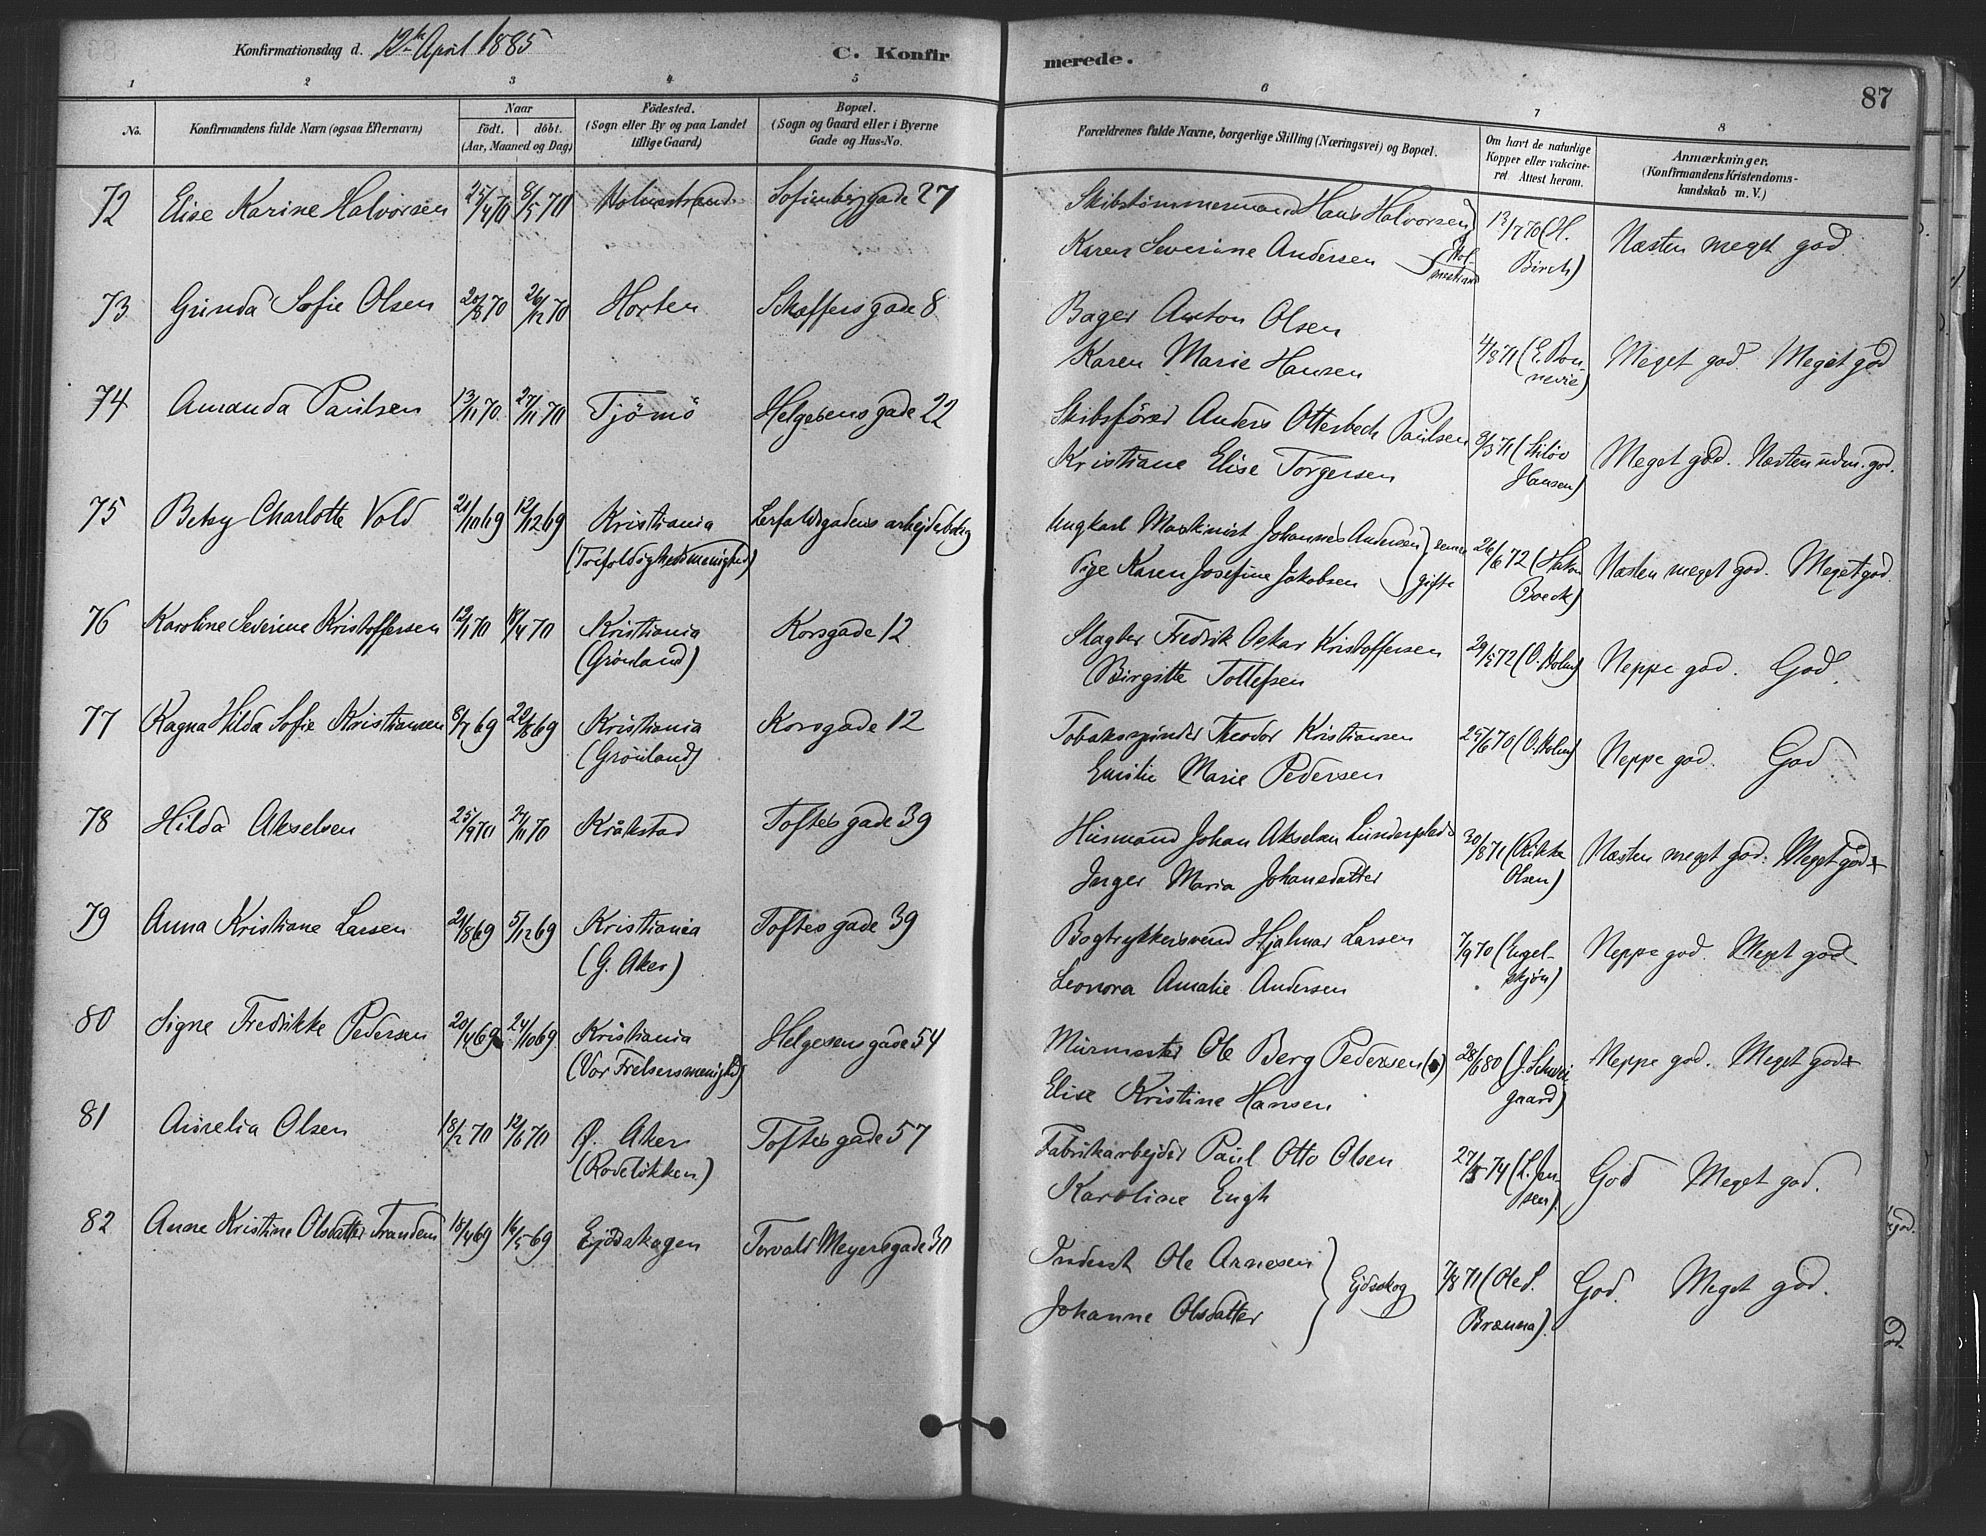 Konfirmationsdag d. 12te April 1885
C. Konfirmerede.
87
1 2 3 4 5 6 7 8
No.
Konfirmandens fulde Navn (ogsaa Efternavn)
Naar
födt. döbt.
(Aar, Maaned og Dag)
Födested.
(Sogn eller By og paa Landet
tillige Gaard)
Bopæl.
(Sogn og Gaard eller i Byerne
Gade og Hus-No.
Forældrenes fulde Navne, borgerlige Stilling (Næringsvei) og Bopæl.
Om havt de naturlige
Kopper eller vakcine-
ret. Attest herom.
Anmærkninger.
(Konfirmandens Kristendoms-
kundskab m. V.)
72 Elise Karine Halvorsen 25/4 70 8/5 70 Holmestrand Sofienbergade 27 Skibstømmermand Hans Halvorsen 13/7 70 (H.
Karen Severine Andersen } Hol-
mestrand Birch) Næsten meget god
73 Gunda Sofie Olsen 20/8 70 26/12 70 Horten Schæffers gade 8 Bager Anton Olsen
Karen Marie Hansen 4/8 71 (E. Bon-
nevie) Meget god. Meget god
74 Amanda Paulsen 13/11 70. 27/11 70 Tjömö Helgesens gade 22 Skibsförer Anders Otterbech Paulsen
Kristiane Elise Torgersen 9/3 71 (
Hansen) Meget god. Næsten udm. god.
75 Betsy Charlotte Vold 21/10 69 12/12 69 Kristiania
(Trefoldighedsmenighed) Lerfaldsgadens arbejderbolig Ungkarl Maskinist Johannes Andersen } senere
Pige Karen Josefine Jakobsen } gifte 26/6 72 (
Boeck) Næsten meget god. Meget god.
76 Karoline Severine Kristoffersen 12/1 70 18/4 70 Kristiania
(Grönland) Korsgade 12 Slagter Fredrik Oskar Kristoffersen
Birgitte Tollefsen 29/5 72 (O. Holm) Neppe god. God.
77 Ragna Hilda Sofie Kristiansen 8/7 69 22/8 69 Kristiania
(Grönland) Korsgade 12 Tobaksspinder Theodor Kristiansen
Emilie Marie Pedersen 25/6 70 (O. Holm) Neppe god. God
78 Hilda Akselsen 25/9 70 27/11 70 Kråkstad Toftes gade 39 Husmand Johan Akselsen Lunderplads
Inger Maria Johansdatter 30/8 71 (Rikke
Olsen) Næsten meget god. Meget god
79 Anna Kristiane Larsen 21/8 69 5/12 69 Kristiania
(G. Aker) Toftes gade 39 Bogtrykkersvend Hjalmar Larsen
Leonora Amalie Andersen 7/9 70 (Engel-
skjön) Neppe god. Meget god
80 Signe Fredrikke Pedersen 20/4 69 24/10 69 Kristiania
(Vor Frelsersmenighed) Helgesens gade 54 Murmester Ole Berg Pedersen
Elise Kristine Hansen 28/6 80 (J. Schwei
gaard) Neppe god. Meget god
81 Aurelia Olsen 18/2 70 12/6 70 Ø. Aker
(Rodelökken) Toftes gade 57 Fabrikarbejder Paul Otto Olsen
Karoline Engh 27/5 74 (L. Jen-
sen). God Meget god.
82 Anne Kristine Olsdatter Trandem 18/4 69 16/5 69 Ejdskogen Torvald Meyersgade 30 Inderst Ole Arnesen
Johanne Olsdatter } Ejdskog 7/8 71 (Ole S.
Brænna). God. Meget god.